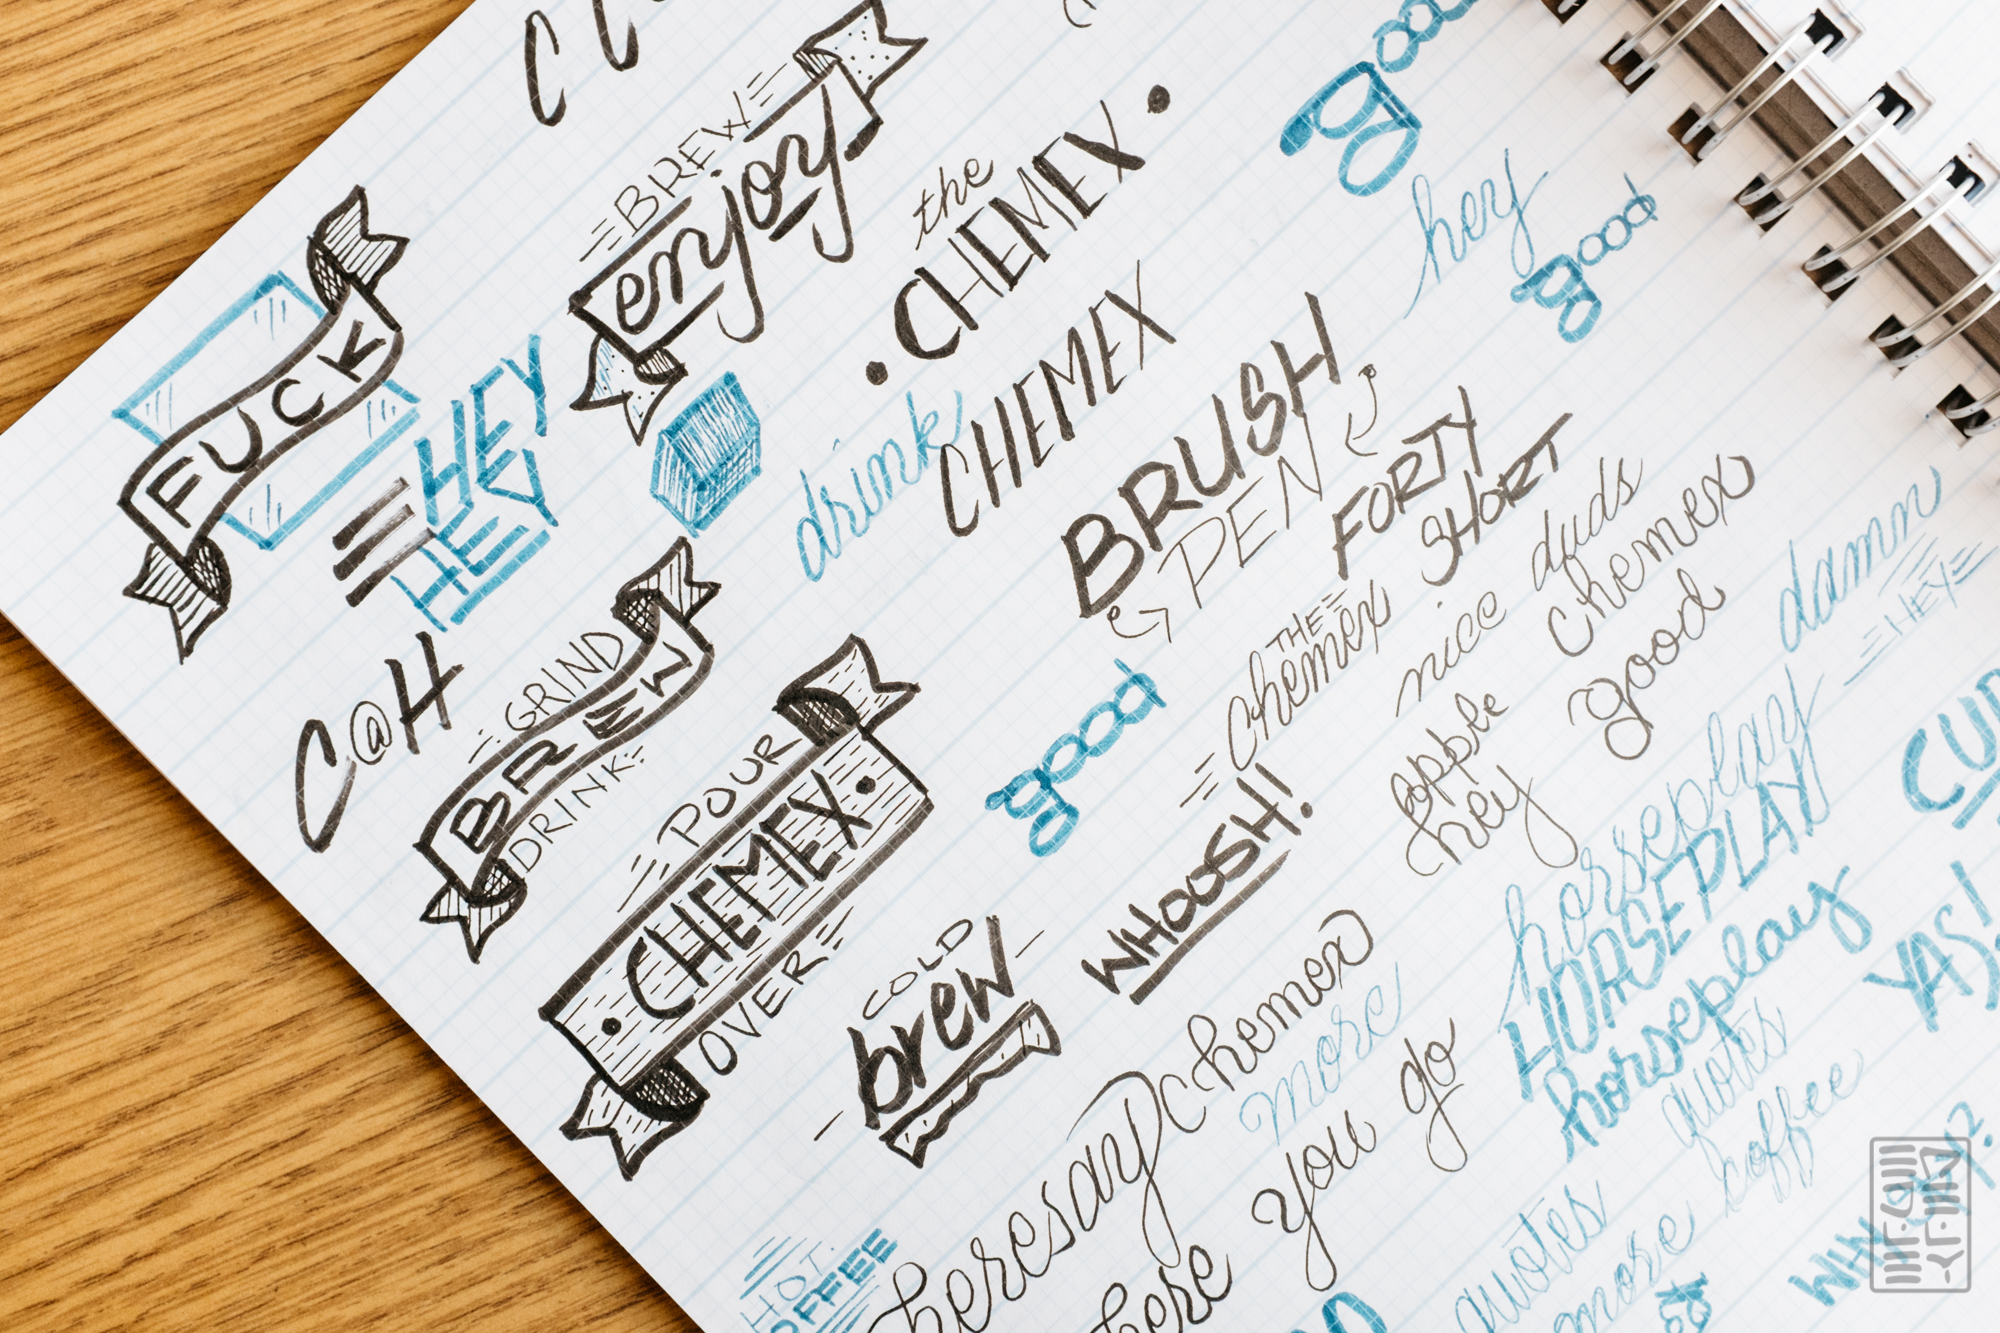 BREW
enjoy
FUCK
HEY
HEY
the
CHEMEX
drink
CHEMEX
good
hey
good
BRUSH
PEN
FORTY
SHORT
THE
chemex
nice duds
chemex
apple
good
hey
damn
HEY
C@H
GRIND
BREW
DRINK
POUR
CHEMEX
OVER
good
WHOOSH!
COLD
brew
horseplay
HORSEPLAY
horseplay
YAS!
chemex
more
heresay
here you go
quotes
coffee
quotes
more
HOT